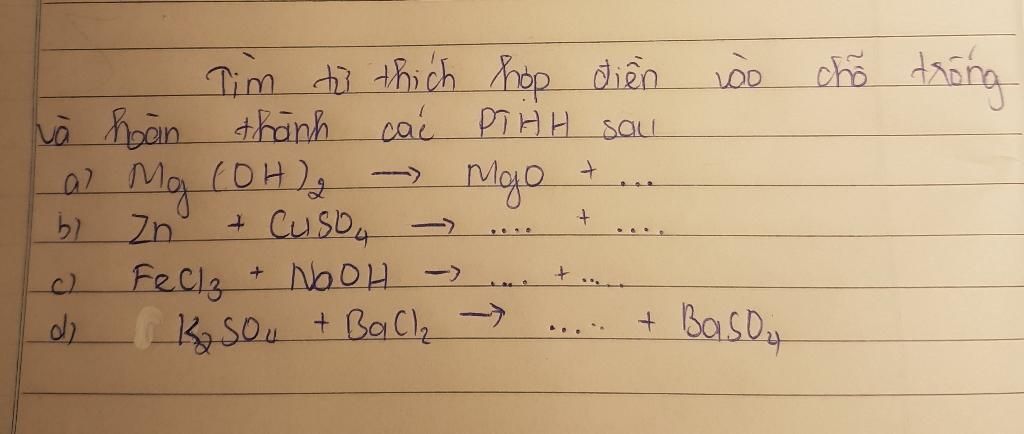 Tìm từ thích hợp điền vào chỗ trống
và hoàn thành các PTHH sau
a) Mg(OH)₂ → MgO + ...
b) Zn + CuSO₄ → .... + ....
c) FeCl₃ + NaOH → .... + .....
d) K₂SO₄ + BaCl₂ → ..... + BaSO₄